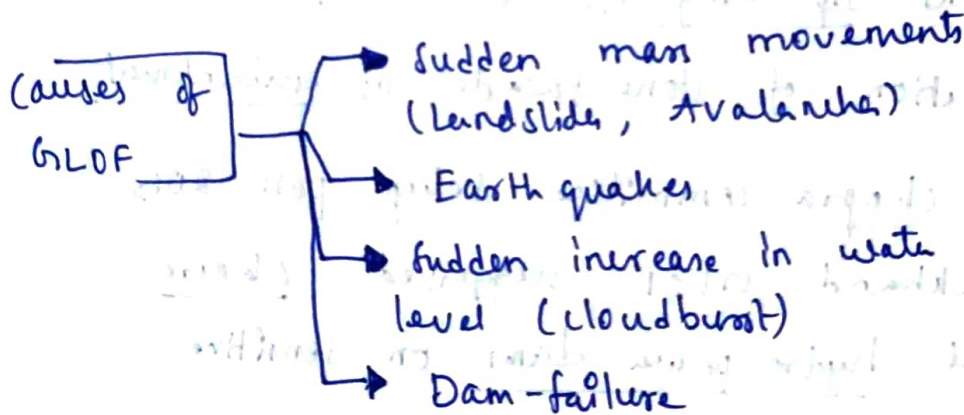 Causes of
GLOF
Sudden mass movements
(Landslides, Avalanches)
Earthquakes
Sudden increase in water
level (cloudburst)
Dam-failure